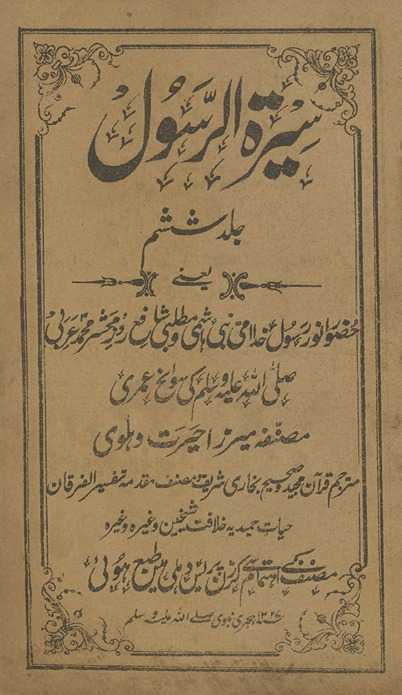 سیرۃ الرسول
جلد ششم
یعنے
حضور انور رسول خدا امی نبی ہاشمی و مطلبی شافع روز محشر محمد عربی
صلی اللہ علیہ وسلم کی سوانح عمری
مصنفہ میرزا حیرت دہلوی
مترجم قرآن مجید و صحیح بخاری شریف و مصنف مقدمہ تفسیر الفرقان
حیات حمیدیہ خلافت شیخین وغیرہ وغیرہ
مصنف کے اہتمام سے کرزن پریس دہلی میں طبع ہوئی
۱۳۲۷ ہجری نبوی صلے اللہ علیہ وسلم